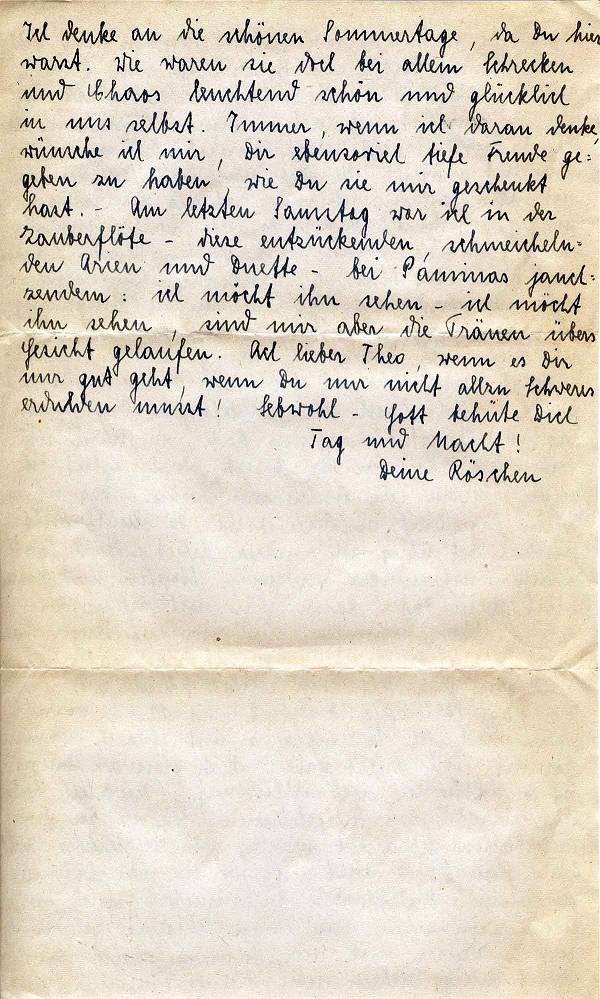 Ich denke an die schönen Sommertage, da Du hier
warst. Wie waren sie doch bei allem Schrecken
und Chaos leuchtend schön und glücklich
in uns selbst. Immer, wenn ich daran denke,
wünsche ich mir, Dir ebensoviel tiefe Freude ge=
geben zu haben, wie Du sie mir geschenkt
hast. - Am letzten Samstag war ich in der
Zauberflöte - diese entzückenden, schmeicheln=
den Arien und Duette - bei Paminas jauch=
zendem: ich möcht ihn sehen - ich möcht
ihn sehen, sind mir aber die Tränen übers
Gesicht gelaufen. Ach lieber Theo, wenn es Dir
nur gut geht, wenn Du nur nicht allzu Schweres
erdulden musst! Lebwohl - Gott behüte Dich
Tag und Nacht!
Deine Röschen